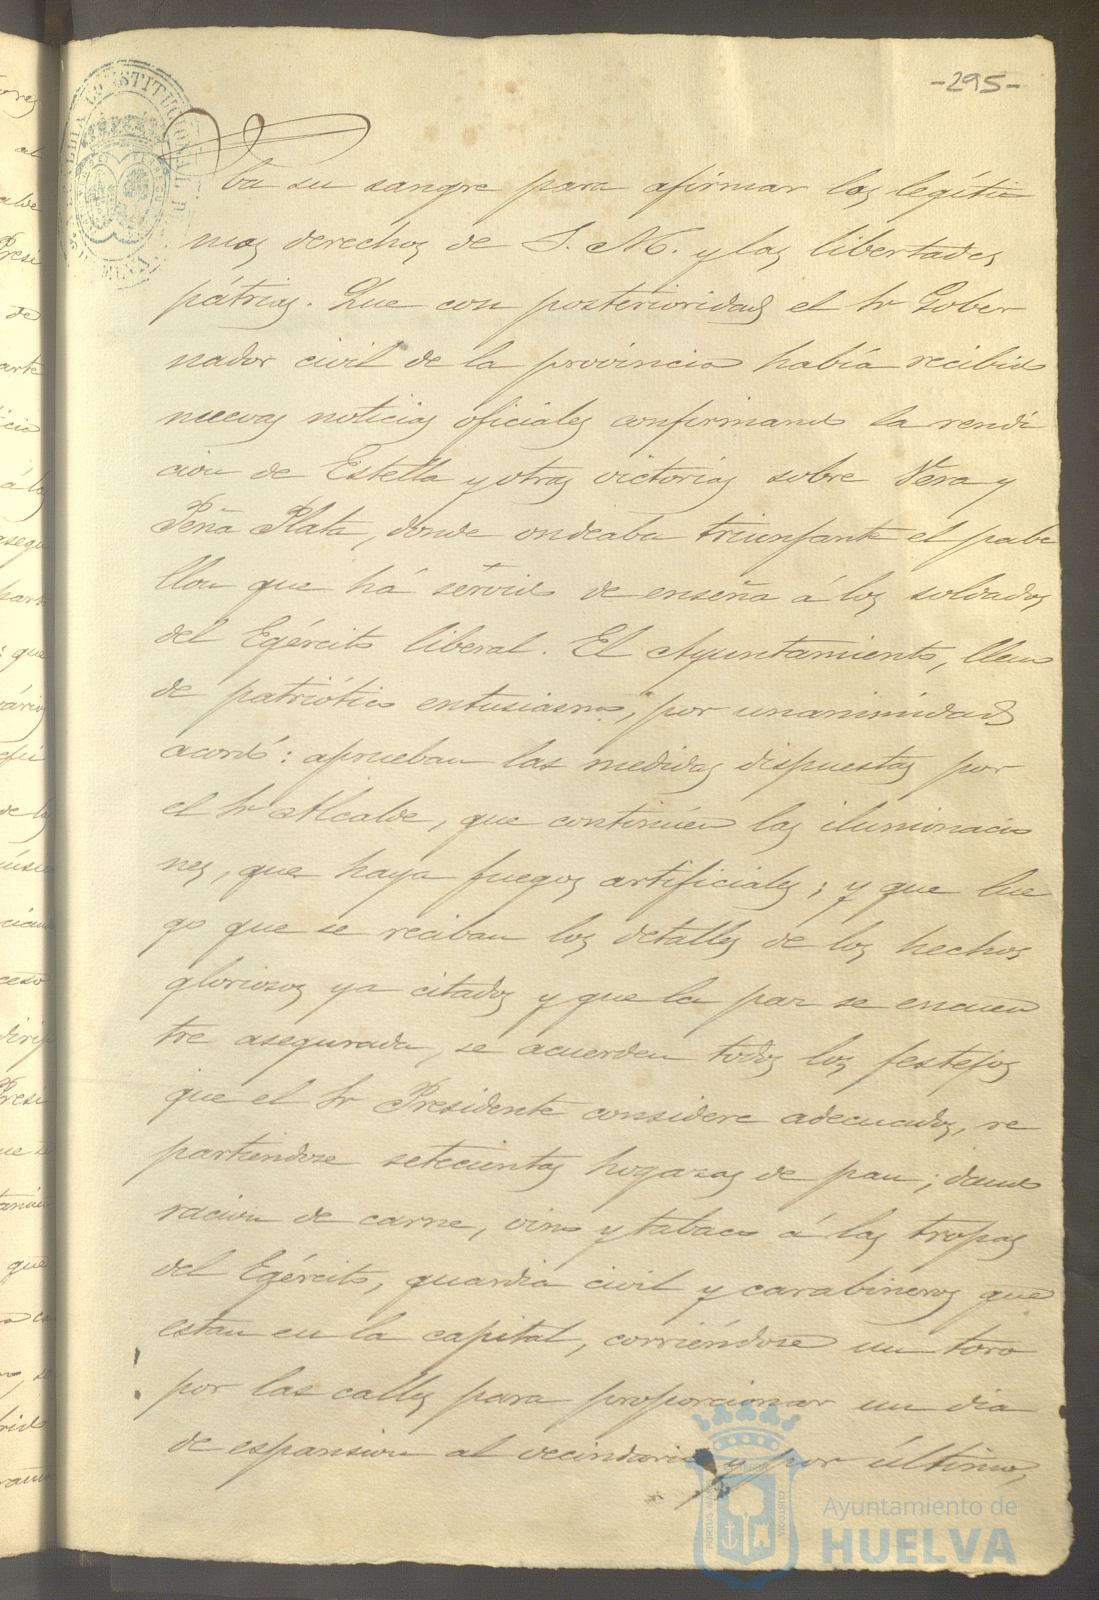 -295-
ALCALDIA CONSTITUCIONAL
ba su sangre para afirmar los legíti
mos derechos de S. M. y las libertades
pátrias. Que con posterioridad el Sr Gober
nador civil de la provincia había recibido
nuevas noticias oficiales confirmando la rendi
cion de Estella y otras victorias sobre Vera y
Peña Plata, donde ondeaba triunfante el pabe
llon que há servido de enseña á los soldados
del Egército liberal. El Ayuntamiento, lleno
de patriótico entusiasmo, por unanimidad
acordó: aprueban las medidas dispuestas por
el Sr Alcalde, que continúen las iluminacio
nes, que haya fuegos artificiales; y que lue
go que se reciban los detalles de los hechos
gloriosos ya citados y que la paz se encuen
tre asegurada, se acuerden todos los festejos
que el Sr Presidente considere adecuados, re
partiendose setecientas hogazas de pan; dando
racion de carne, vino y tabaco á las tropas
del Egército, guardia civil y carabineros que
estan en la capital, corriéndose un toro
por las calles para proporcionar un dia
de espansion al vecindario y por último,
PORTUS MARIS
CUSTODIA
Ayuntamiento de
HUELVA